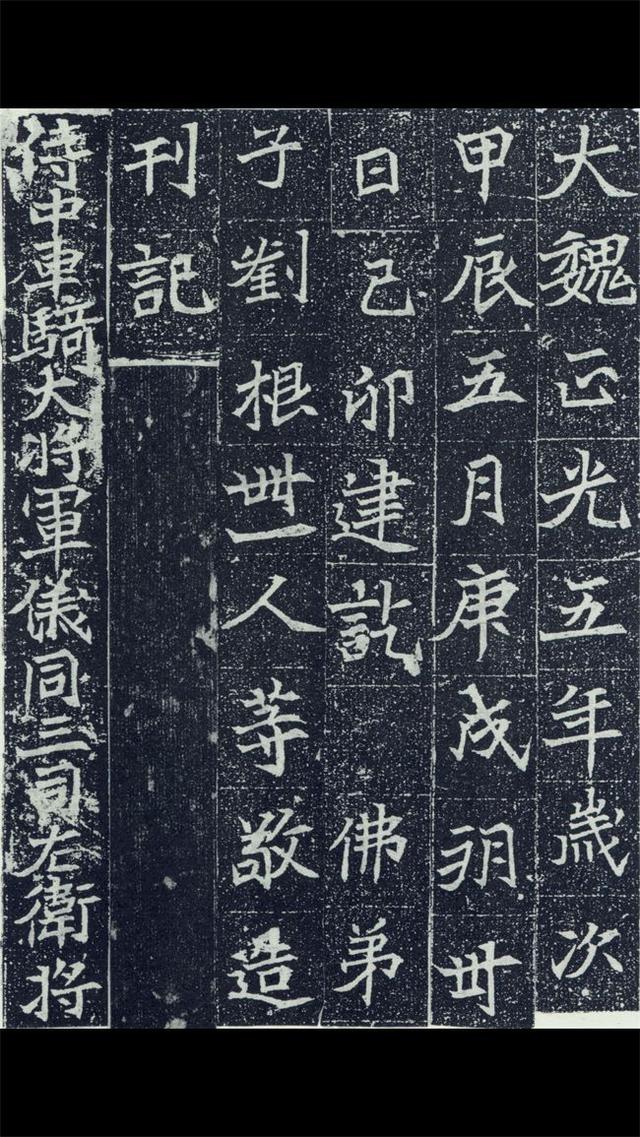 大魏正光五年歲次
甲辰五月庚戌朔卅
日己卯建訖佛弟
子劉根卌一人等敬造
刊記
侍中車騎大將軍儀同三司右衛將